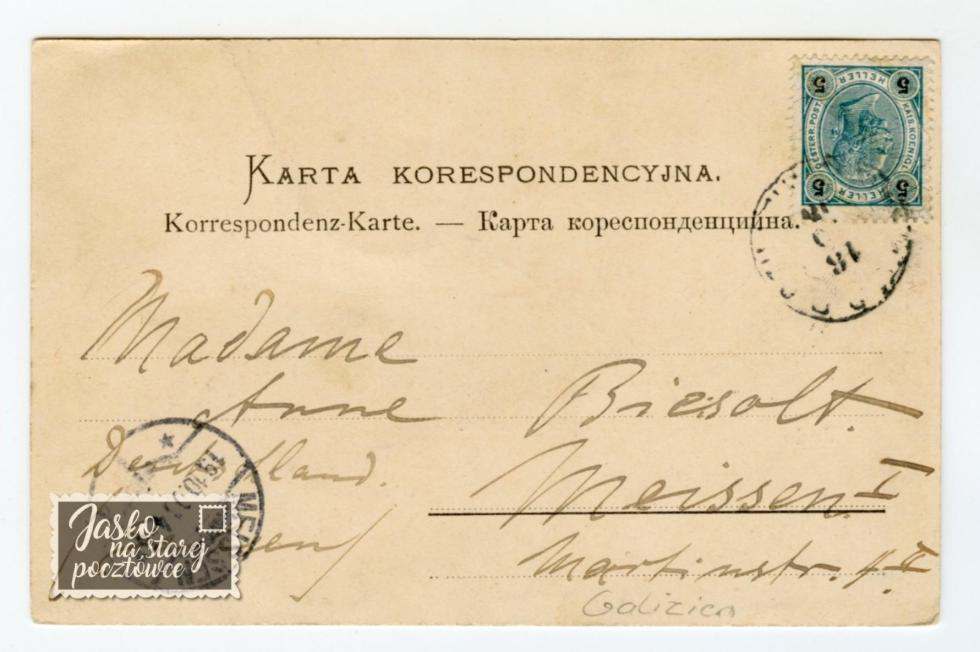 KARTA KORESPONDENCYJNA.
Korrespondenz-Karte. — Карта кореспонденцийна.
5 HELLER 5
OESTERR. POST. KAIS. KOENIGL.
5 HELLER 5
18
Madame
Anne Biesolt.
Deutschland. Meissen I
Martinstr.
Galizien
19.10.01
MEISSEN
Jasło
na starej
pocztówce